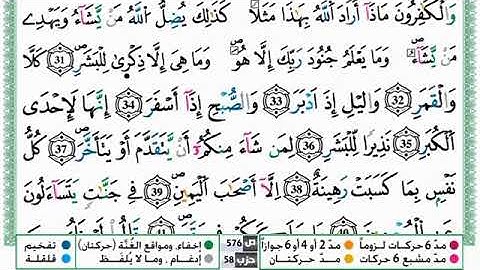 وَالْكَٰفِرُونَ مَاذَآ أَرَادَ اَللَّهُ بِهَٰذَا مَثَلاً كَذَٰلِكَ يُضِلُّ اُللَّهُ مَنْ يَّشَآءُ وَيَهْدِے
مَنْ يَّشَآءُ وَمَا يَعْلَمُ جُنُودَ رَبِّكَ إِلَّا هُوَ وَمَا هِىَ إِلَّا ذِكْرَىٰ لِلْبَشَرِ 31 كَلَّا
وَالْقَمَرِ 32 وَاليْلِ إِذَ اَدْبَرَ 33 وَالصُّبْحِ إِذَآ أَسْفَرَ 34 إِنَّهَا لَإِحْدَى
اَلْكُبَرِ 35 نَذِيراً لِّلْبَشَرِ 36 لِمَن شَآءَ مِنكُمُۥٓ أَنْ يَّتَقَدَّمَ أَوْ يَتَأَخَّرَ 37 كُلُّ
نَفْسٍ بِمَا كَسَبَتْ رَهِينَةٌ 38 إِلَّآ أَصْحَٰبَ اَلْيَمِينِ 39 فِى جَنَّٰتٍ يَتَسَآءَلُونَ
مدّ 6 حركات لزوماً مدّ 2 أو 4 أو 6 جوازاً ص 576 إخفاء، ومواقع الغُنَّة (حركتان) تفخيم
مدّ مشبع 6 حركات مدّ حركتان حزب 58 إدغام، وما لا يُلفَظ قلقلة